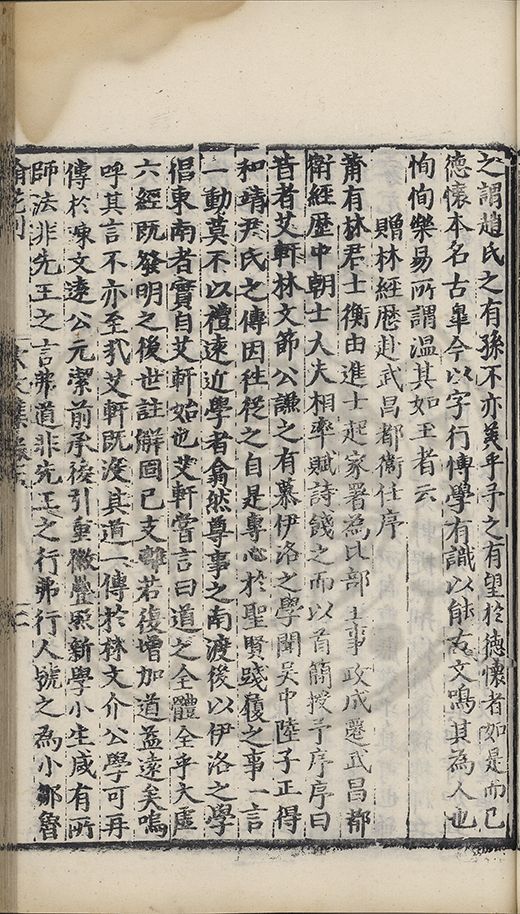 之謂趙氏之有孫不亦美乎予之有望於德懷者如是而已
德懷本名古臯今以字行博學有識以能古文鳴其為人也
恂恂樂易所謂温其如玉者云
贈林經歷赴武昌都衛任序
莆有林君士衡由進士起家署為比部主事政成遷武昌都
衛經歷中朝士大夫相率賦詩餞之而以首簡授予序序曰
昔者艾軒林文節公謙之有慕伊洛之學聞吳中陸子正得
和靖尹氏之傳因徃從之自是專心於聖賢踐履之事一言
一動莫不以禮遠近學者翕然尊事之南渡後以伊洛之學
倡東南者實自艾軒始也艾軒嘗言曰道之全體全乎太虛
六經既發明之後世註解固已支離若復增加道益遠矣嗚
呼其言不亦至哉艾軒既沒其道一傳於林文介公學可再
傳於陳文遠公元潔前承後引重徽疊照新學小生咸有所
師法非先王之言弗道非先王之行弗行人號之為小鄒魯